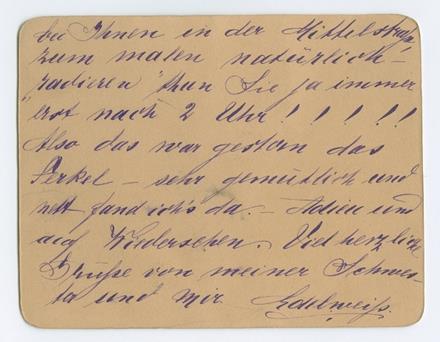 bei Ihnen in der Mittelstraße
zum malen natürlich –
"radieren" thun Sie ja immer
erst nach 2 Uhr! ! ! ! ! !
Also das war gestern das
Ferkel – sehr gemütlich und
nett fand ich's da. – Adieu und
auf Wiedersehen. Viel herzliche
Grüße von meiner Schwes-
ter und mir Edelweiß.